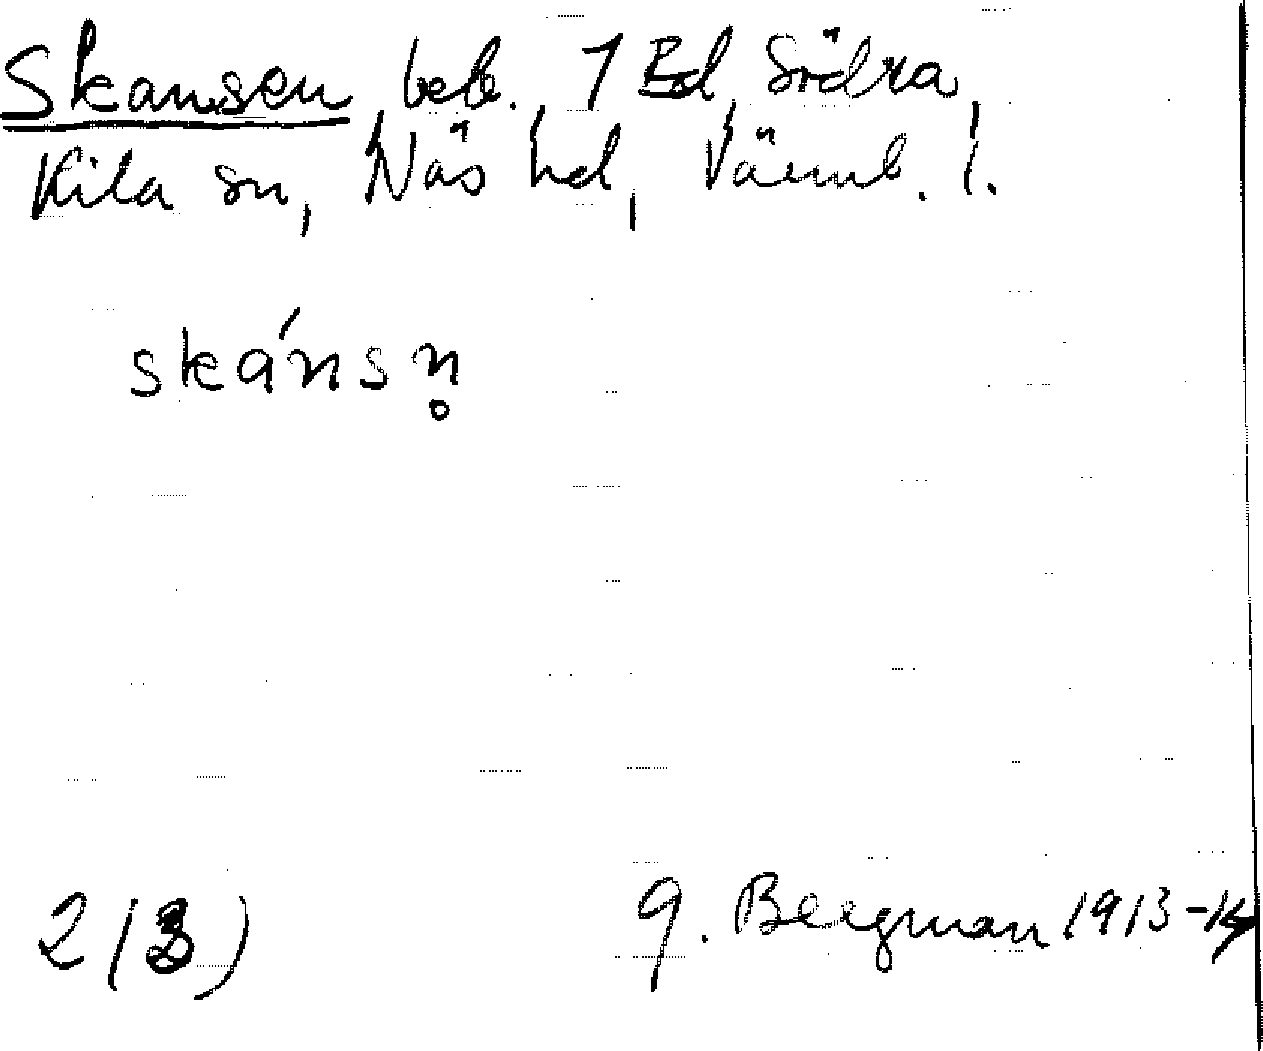 Skansen, beb., 1 Ed, Södra
Kila sn, Näs hd, Värml. l.
skánsn̥
2(3)
G. Bergman 1913-14